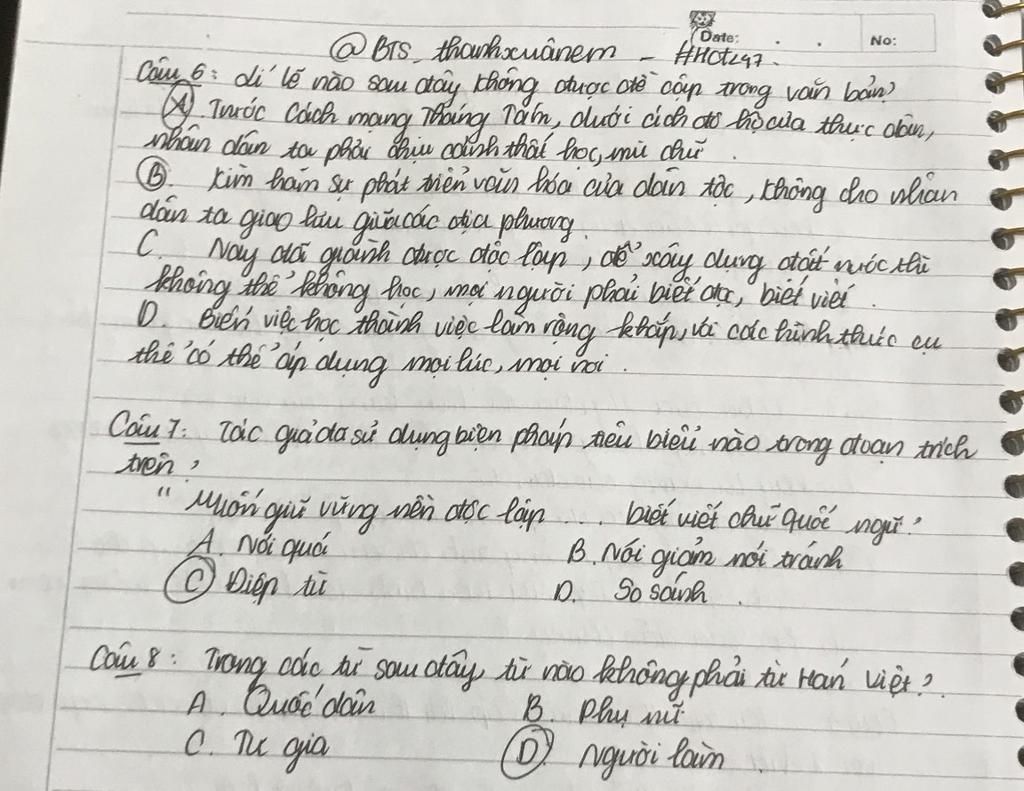 Date: . . No:
@BTS_thanhxuânem - #HOTL97.
Câu 6: Lí lẽ nào sau đây không được đề cập trong văn bản?
A. Trước Cách mạng Tháng Tám, dưới ách đô hộ của thực dân,
nhân dân ta phải chịu cảnh thất học, mù chữ.
B. Kìm hãm sự phát triển văn hóa của dân tộc, không cho nhân
dân ta giao lưu giữa các địa phương.
C. Nay đã giành được độc lập, để xây dựng đất nước thì
không thể không học, mọi người phải biết đọc, biết viết.
D. Biến việc học thành việc làm rộng khắp, với các hình thức cụ
thể có thể áp dụng mọi lúc, mọi nơi.
Câu 7: Tác giả đã sử dụng biện pháp tiêu biểu nào trong đoạn trích
trên?
" Muốn giữ vững nền độc lập ... biết viết chữ quốc ngữ"
A. Nói quá B. Nói giảm nói tránh
C Điệp từ D. So sánh.
Câu 8: Trong các từ sau đây, từ nào không phải từ Hán Việt?
A. Quốc dân B. Phụ nữ
C. Tư gia D. Người làm.